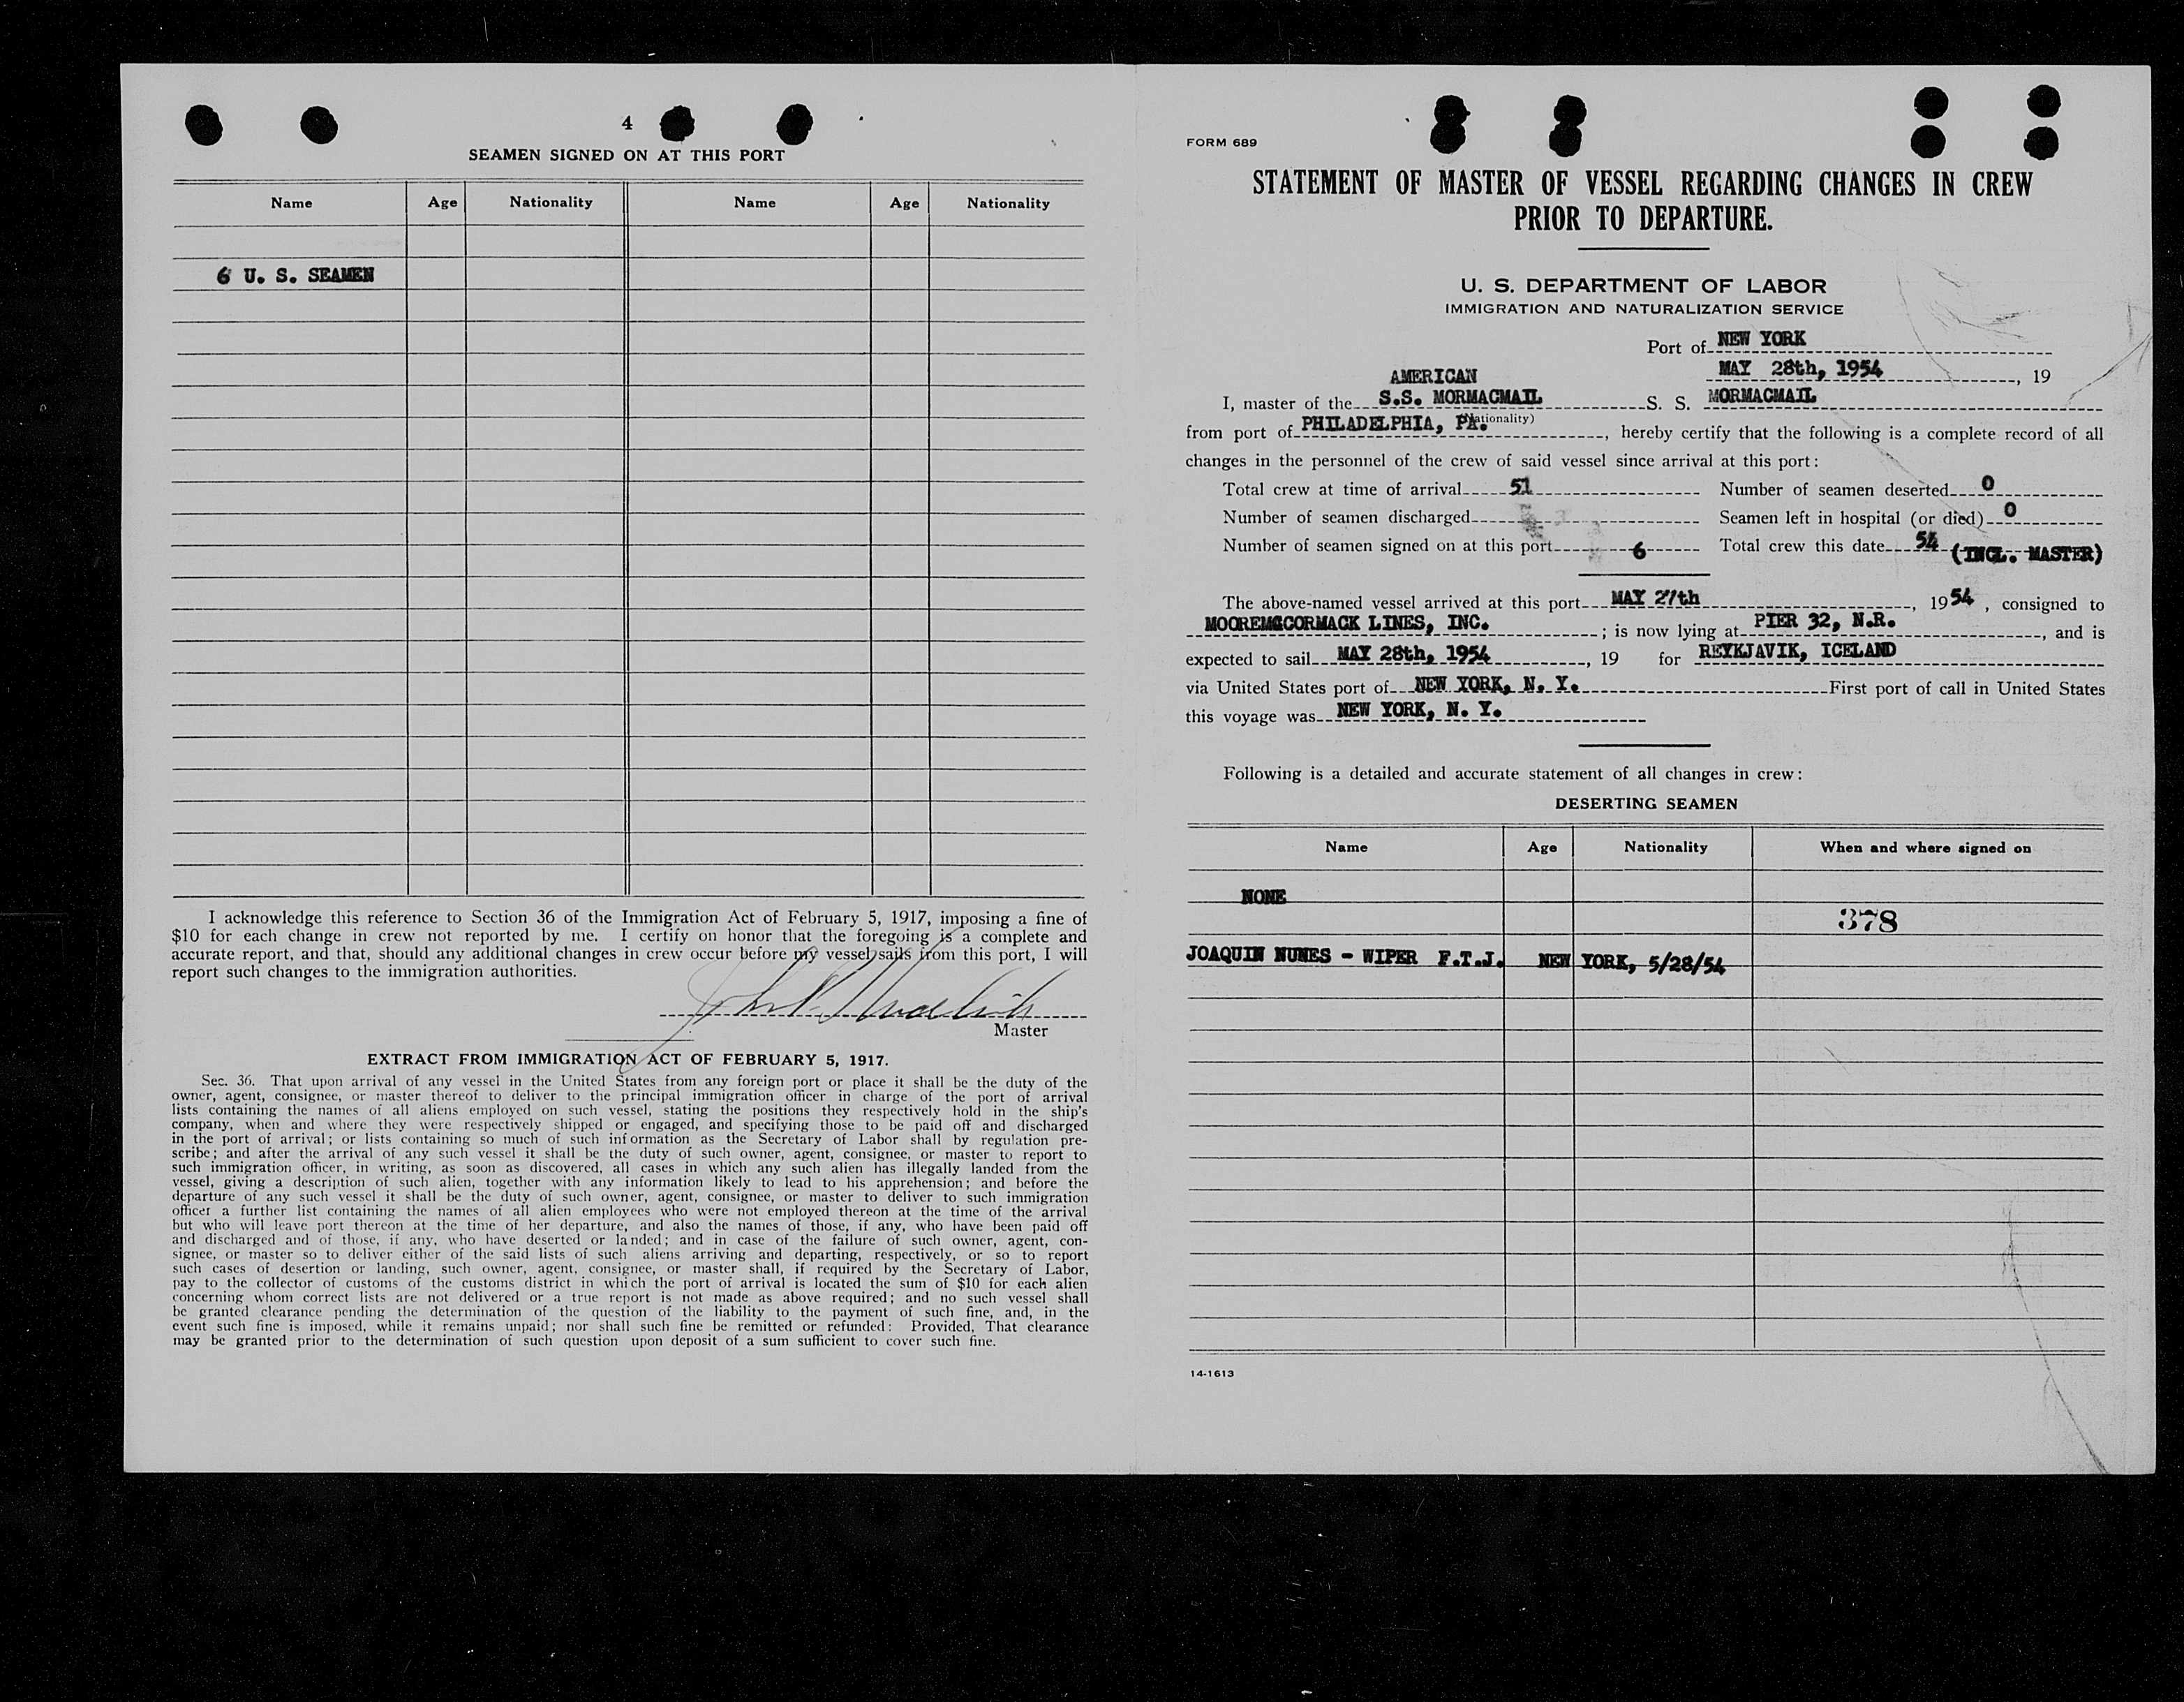 4
SEAMEN SIGNED ON AT THIS PORT
Name Age Nationality Name Age Nationality
6 U. S. SEAMEN
I acknowledge this reference to Section 36 of the Immigration Act of February 5, 1917, imposing a fine of
$10 for each change in crew not reported by me. I certify on honor that the foregoing is a complete and
accurate report, and that, should any additional changes in crew occur before my vessel sails from this port, I will
report such changes to the immigration authorities.
Master
EXTRACT FROM IMMIGRATION ACT OF FEBRUARY 5, 1917.
Sec. 36. That upon arrival of any vessel in the United States from any foreign port or place it shall be the duty of the
owner, agent, consignee, or master thereof to deliver to the principal immigration officer in charge of the port of arrival
lists containing the names of all aliens employed on such vessel, stating the positions they respectively hold in the ship's
company, when and where they were respectively shipped or engaged, and specifying those to be paid off and discharged
in the port of arrival; or lists containing so much of such information as the Secretary of Labor shall by regulation pre-
scribe; and after the arrival of any such vessel it shall be the duty of such owner, agent, consignee, or master to report to
such immigration officer, in writing, as soon as discovered, all cases in which any such alien has illegally landed from the
vessel, giving a description of such alien, together with any information likely to lead to his apprehension; and before the
departure of any such vessel it shall be the duty of such owner, agent, consignee, or master to deliver to such immigration
officer a further list containing the names of all alien employees who were not employed thereon at the time of the arrival
but who will leave port thereon at the time of her departure, and also the names of those, if any, who have been paid off
and discharged and of those, if any, who have deserted or landed; and in case of the failure of such owner, agent, con-
signee, or master so to deliver either of the said lists of such aliens arriving and departing, respectively, or so to report
such cases of desertion or landing, such owner, agent, consignee, or master shall, if required by the Secretary of Labor,
pay to the collector of customs of the customs district in which the port of arrival is located the sum of $10 for each alien
concerning whom correct lists are not delivered or a true report is not made as above required; and no such vessel shall
be granted clearance pending the determination of the question of the liability to the payment of such fine, and, in the
event such fine is imposed, while it remains unpaid; nor shall such fine be remitted or refunded: Provided, That clearance
may be granted prior to the determination of such question upon deposit of a sum sufficient to cover such fine.
FORM 689
STATEMENT OF MASTER OF VESSEL REGARDING CHANGES IN CREW
PRIOR TO DEPARTURE.
U. S. DEPARTMENT OF LABOR
IMMIGRATION AND NATURALIZATION SERVICE
Port of NEW YORK
MAY 28th, 1954, 19
AMERICAN
I, master of the S.S. MORMACMAIL S. S. MORMACMAIL
(Nationality)
from port of PHILADELPHIA, PA., hereby certify that the following is a complete record of all
changes in the personnel of the crew of said vessel since arrival at this port:
Total crew at time of arrival 51 Number of seamen deserted 0
Number of seamen discharged 3 Seamen left in hospital (or died) 0
Number of seamen signed on at this port 6 Total crew this date 54 (INCL. MASTER)
The above-named vessel arrived at this port MAY 27th, 1954, consigned to
MOOREMcCORMACK LINES, INC.; is now lying at PIER 32, N.R., and is
expected to sail MAY 28th, 1954, 19 for REYKJAVIK, ICELAND
via United States port of NEW YORK, N. Y. First port of call in United States
this voyage was NEW YORK, N. Y.
Following is a detailed and accurate statement of all changes in crew:
DESERTING SEAMEN
Name Age Nationality When and where signed on
NONE
378
JOAQUIN NUNES - WIPER F.T.J. NEW YORK, 5/28/54
14-1613